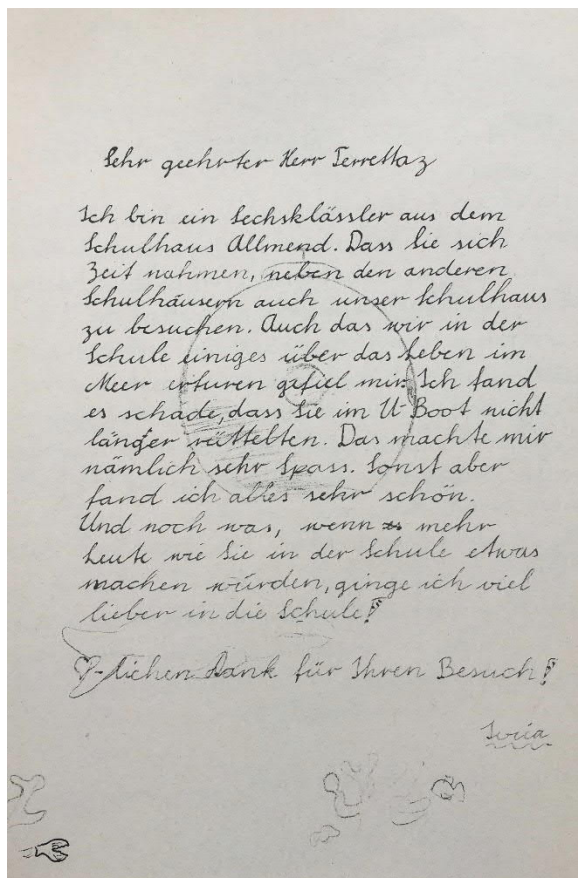 Sehr geehrter Herr Terrettaz
Ich bin ein Sechsklässler aus dem
Schulhaus Allmend. Dass Sie sich
Zeit nahmen, neben den anderen
Schulhäusern auch unser Schulhaus
zu besuchen. Auch das wir in der
Schule einiges über das Leben im
Meer erfuren gefiel mir. Ich fand
es schade, dass Sie im U-Boot nicht
länger rüttelten. Das machte mir
nämlich sehr Spass. Sonst aber
fand ich alles sehr schön.
Und noch was, wenn mehr
Leute wie Sie in der Schule etwas
machen würden, ginge ich viel
lieber in die Schule!
♡-lichen Dank für Ihren Besuch!